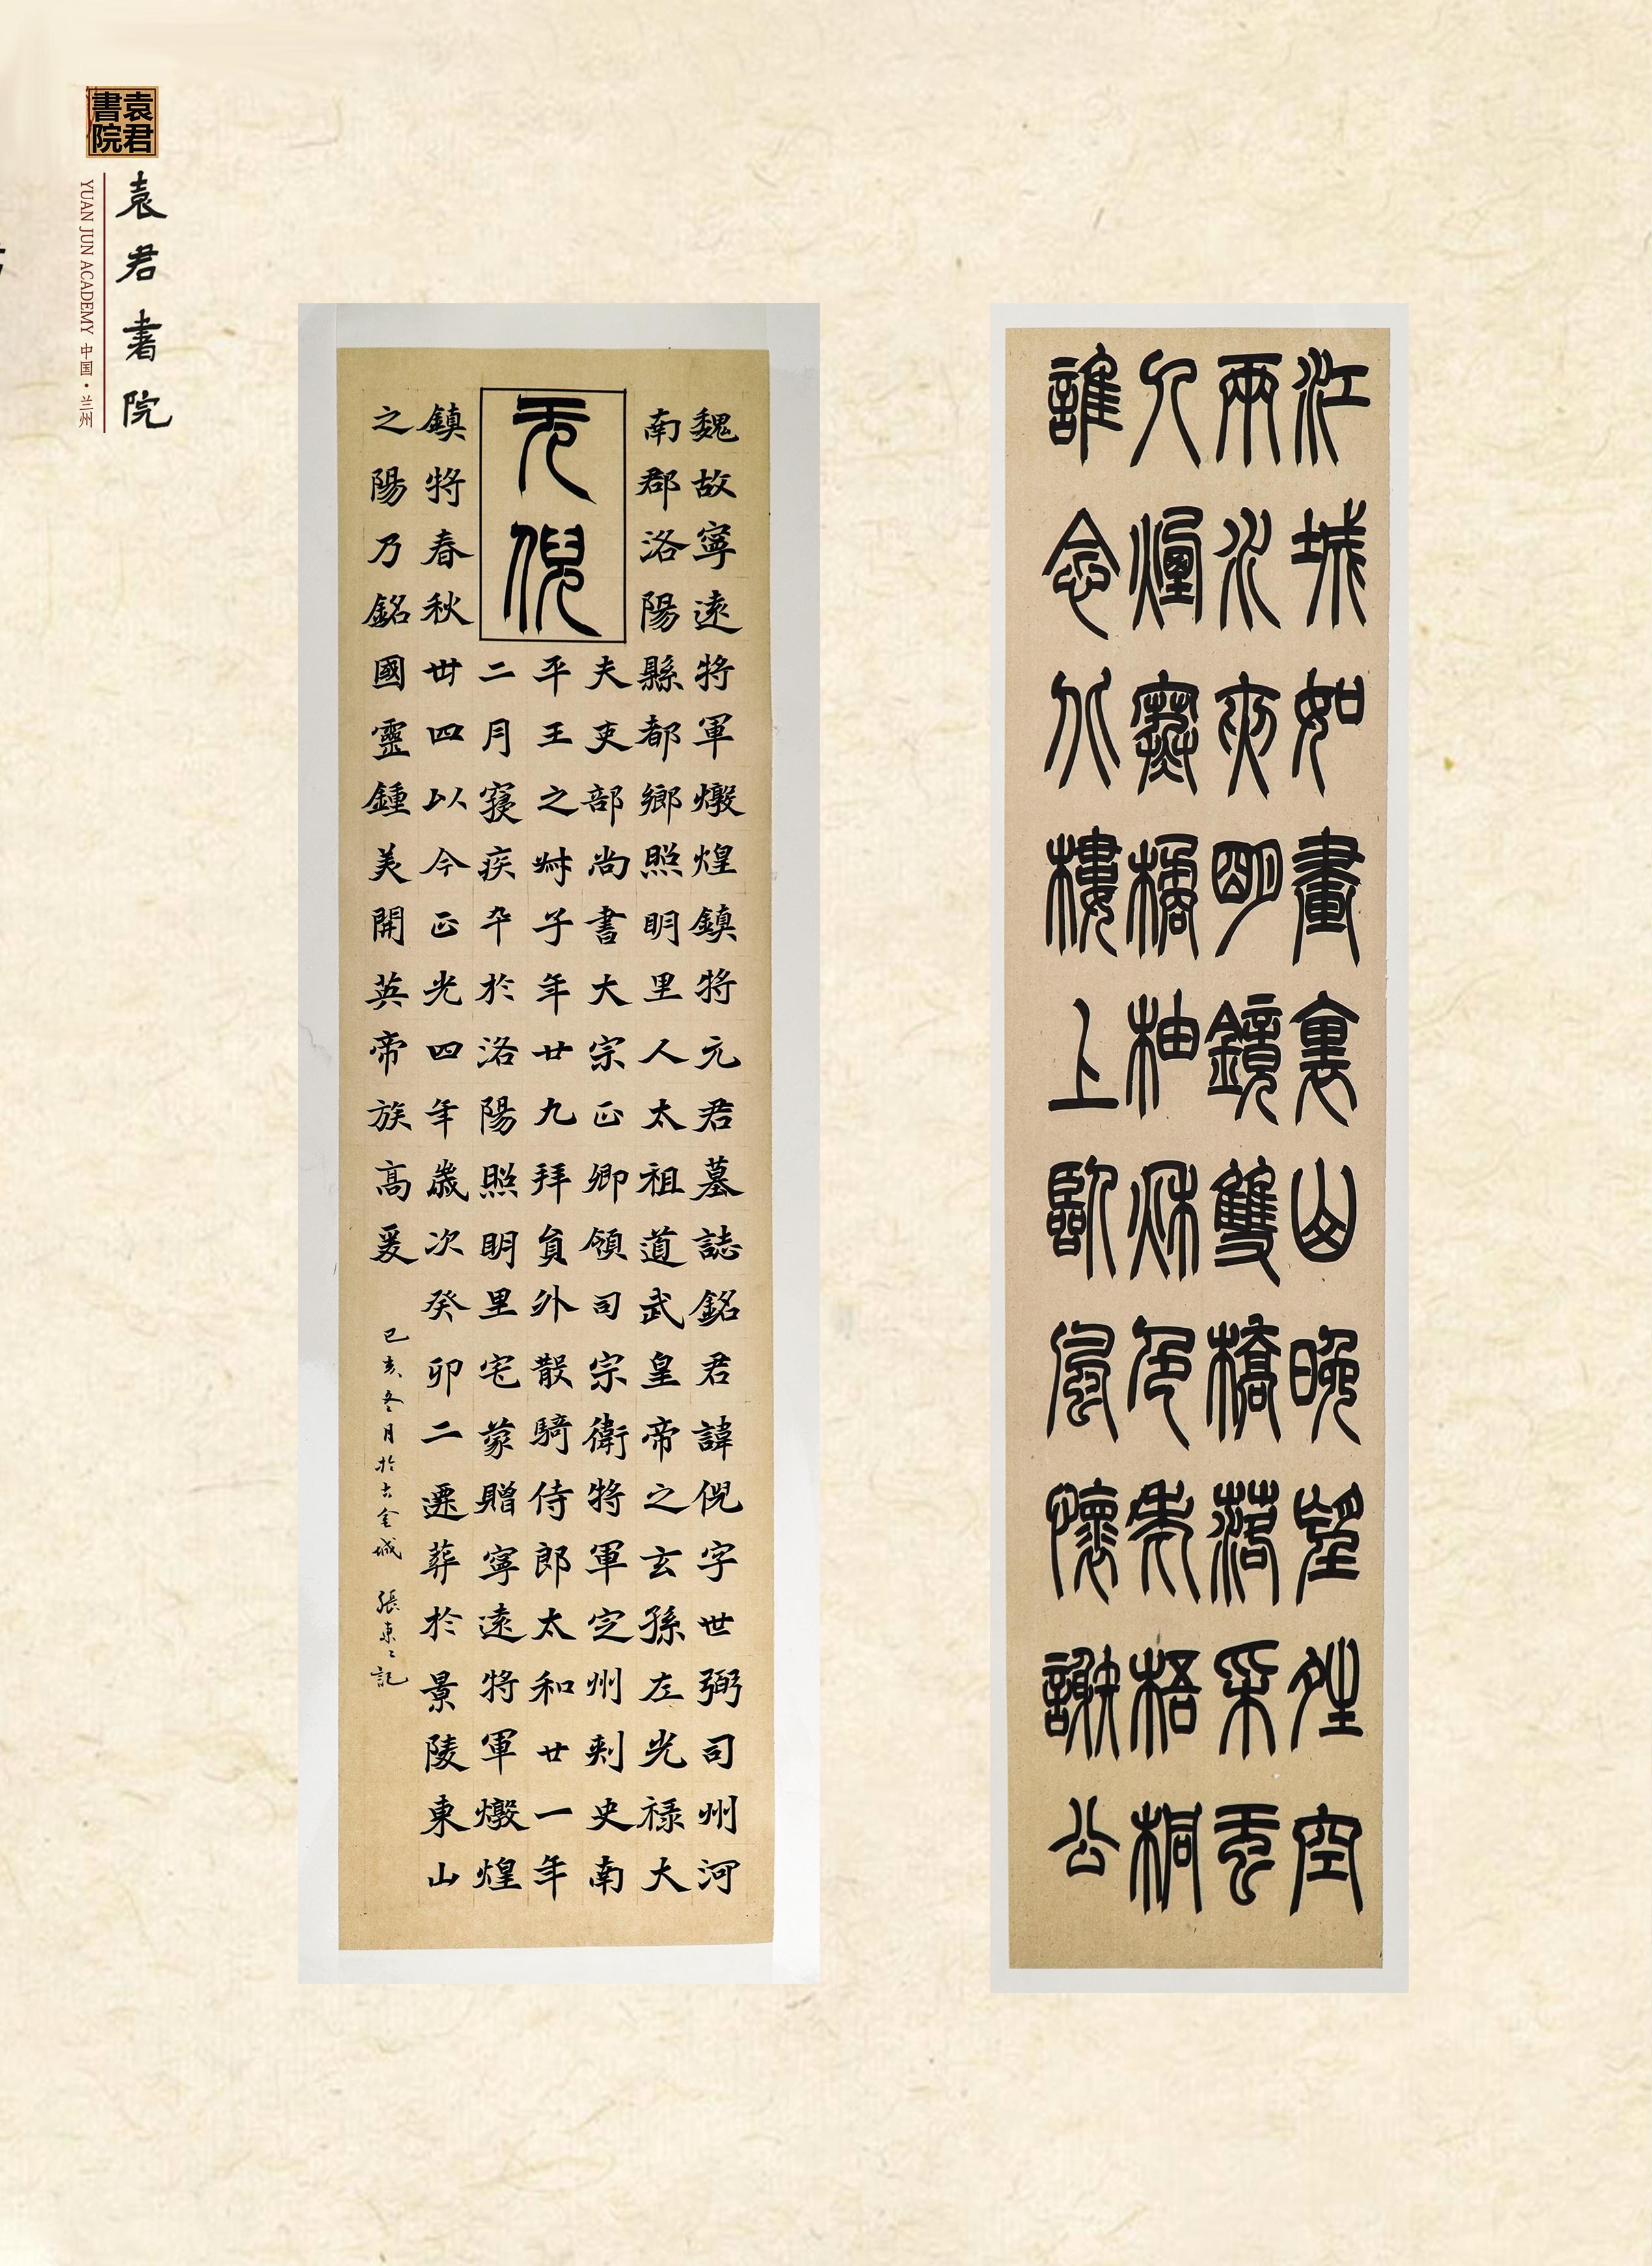 袁君書院
袁君書院
YUAN JUN ACADEMY 中国·兰州
江城如畫裏山晚望夝空
兩水夾明鏡雙橋落采虹
人煙寒橘柚秋色老梧桐
誰念北樓上臨風懷謝公
元倪
魏故寧遠將軍燉煌鎮將元君墓誌銘君諱倪字世弼司州河
南郡洛陽縣都鄉照明里人太祖道武皇帝之玄孫左光祿大
夫吏部尚書大宗正卿領司宗衛將軍定州刺史南
平王之叔子年廿九拜員外散騎侍郎太和廿一年
二月寢疾卒於洛陽照明里宅蒙贈寧遠將軍燉煌
鎮將春秋卌四以今正光四年歲次癸卯二遷葬於景陵東山
之陽乃銘國靈鍾美開英帝族高爰
己亥冬月於古金城 張東々記